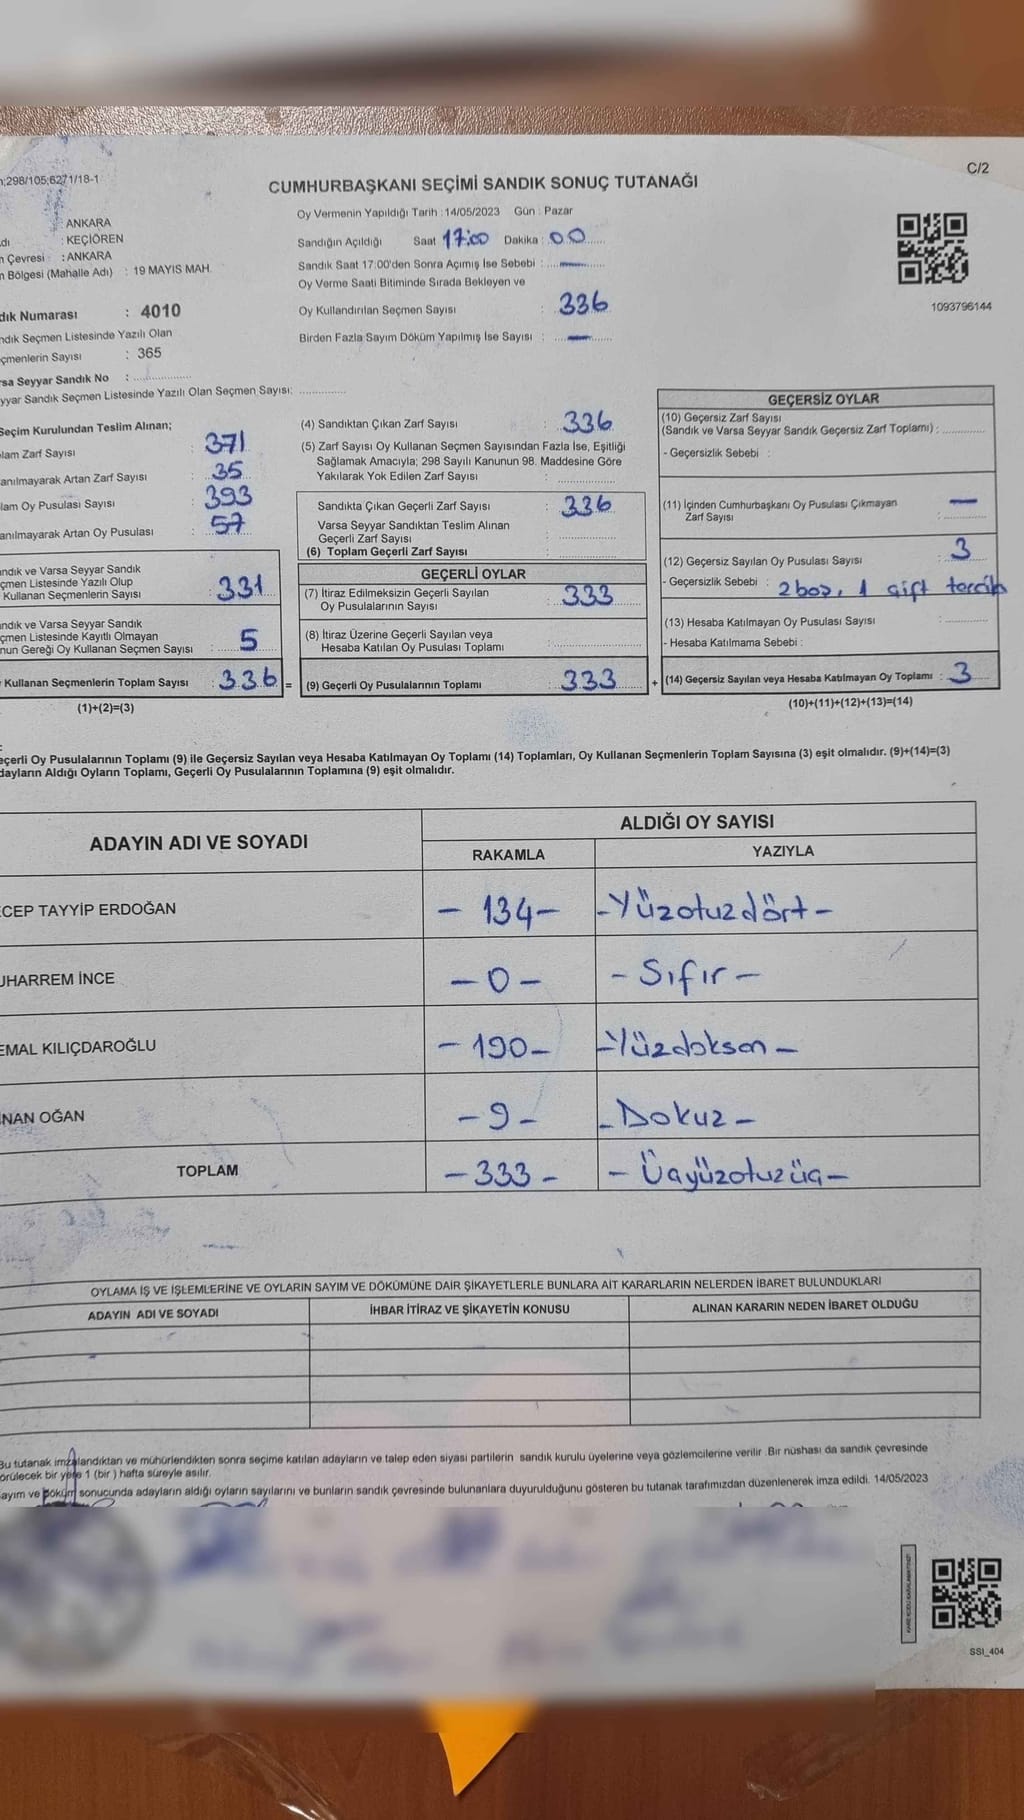 C/2
298/105;6271/18-1
CUMHURBAŞKANI SEÇİMİ SANDIK SONUÇ TUTANAĞI
: ANKARA
: KEÇİÖREN
Çevresi : ANKARA
Bölgesi (Mahalle Adı) : 19 MAYIS MAH.
Oy Vermenin Yapıldığı Tarih : 14/05/2023 Gün : Pazar
Sandığın Açıldığı Saat 17:00 Dakika : 00
Sandık Saat 17:00'den Sonra Açımış İse Sebebi : —
Oy Verme Saati Bitiminde Sırada Bekleyen ve
Oy Kullandırılan Seçmen Sayısı : 336
Birden Fazla Sayım Döküm Yapılmış İse Sayısı : —
1093796144
Numarası : 4010
Seçmen Listesinde Yazılı Olan
Sayısı : 365
Seyyar Sandık No :
Sandık Seçmen Listesinde Yazılı Olan Seçmen Sayısı:
Seçim Kurulundan Teslim Alınan;
Zarf Sayısı : 371
Artan Zarf Sayısı : 35
Oy Pusulası Sayısı : 393
Artan Oy Pusulası : 57
ve Varsa Seyyar Sandık
Listesinde Yazılı Olup
Kullanan Seçmenlerin Sayısı : 331
ve Varsa Seyyar Sandık
Listesinde Kayıtlı Olmayan
Gereği Oy Kullanan Seçmen Sayısı : 5
Kullanan Seçmenlerin Toplam Sayısı 336 =
(1)+(2)=(3)
(4) Sandıktan Çıkan Zarf Sayısı : 336
(5) Zarf Sayısı Oy Kullanan Seçmen Sayısından Fazla İse, Eşitliği
Sağlamak Amacıyla; 298 Sayılı Kanunun 98. Maddesine Göre
Yakılarak Yok Edilen Zarf Sayısı :
Sandıkta Çıkan Geçerli Zarf Sayısı : 336
Varsa Seyyar Sandıktan Teslim Alınan
Geçerli Zarf Sayısı :
(6) Toplam Geçerli Zarf Sayısı :
GEÇERLİ OYLAR
(7) İtiraz Edilmeksizin Geçerli Sayılan
Oy Pusulalarının Sayısı : 333
(8) İtiraz Üzerine Geçerli Sayılan veya
Hesaba Katılan Oy Pusulası Toplamı :
(9) Geçerli Oy Pusulalarının Toplamı : 333 +
GEÇERSİZ OYLAR
(10) Geçersiz Zarf Sayısı
(Sandık ve Varsa Seyyar Sandık Geçersiz Zarf Toplamı) :
- Geçersizlik Sebebi :
(11) İçinden Cumhurbaşkanı Oy Pusulası Çıkmayan —
Zarf Sayısı :
(12) Geçersiz Sayılan Oy Pusulası Sayısı : 3
- Geçersizlik Sebebi : 2 boş, 1 çift tercih
(13) Hesaba Katılmayan Oy Pusulası Sayısı :
- Hesaba Katılmama Sebebi :
(14) Geçersiz Sayılan veya Hesaba Katılmayan Oy Toplamı : 3
(10)+(11)+(12)+(13)=(14)
Oy Pusulalarının Toplamı (9) ile Geçersiz Sayılan veya Hesaba Katılmayan Oy Toplamı (14) Toplamları, Oy Kullanan Seçmenlerin Toplam Sayısına (3) eşit olmalıdır. (9)+(14)=(3)
Aldığı Oyların Toplamı, Geçerli Oy Pusulalarının Toplamına (9) eşit olmalıdır.
ADAYIN ADI VE SOYADI
ALDIĞI OY SAYISI
RAKAMLA YAZIYLA
CEP TAYYİP ERDOĞAN – 134 – – Yüzotuzdört –
HARREM İNCE – 0 – – Sıfır –
EMAL KILIÇDAROĞLU – 190 – – Yüzdoksan –
NAN OĞAN – 9 – – Dokuz –
TOPLAM – 333 – – Üçyüzotuzüç –
OYLAMA İŞ VE İŞLEMLERİNE VE OYLARIN SAYIM VE DÖKÜMÜNE DAİR ŞİKAYETLERLE BUNLARA AİT KARARLARIN NELERDEN İBARET BULUNDUKLARI
ADAYIN ADI VE SOYADI İHBAR İTİRAZ VE ŞİKAYETİN KONUSU ALINAN KARARIN NEDEN İBARET OLDUĞU
Bu tutanak imzalandıktan ve mühürlendikten sonra seçime katılan adayların ve talep eden siyasi partilerin sandık kurulu üyelerine veya gözlemcilerine verilir .Bir nüshası da sandık çevresinde
görülecek bir yere 1 (bir ) hafta süreyle asılır.
Sayım ve döküm sonucunda adayların aldığı oyların sayılarını ve bunların sandık çevresinde bulunanlara duyurulduğunu gösteren bu tutanak tarafımızdan düzenlenerek imza edildi. 14/05/2023
SSI_404